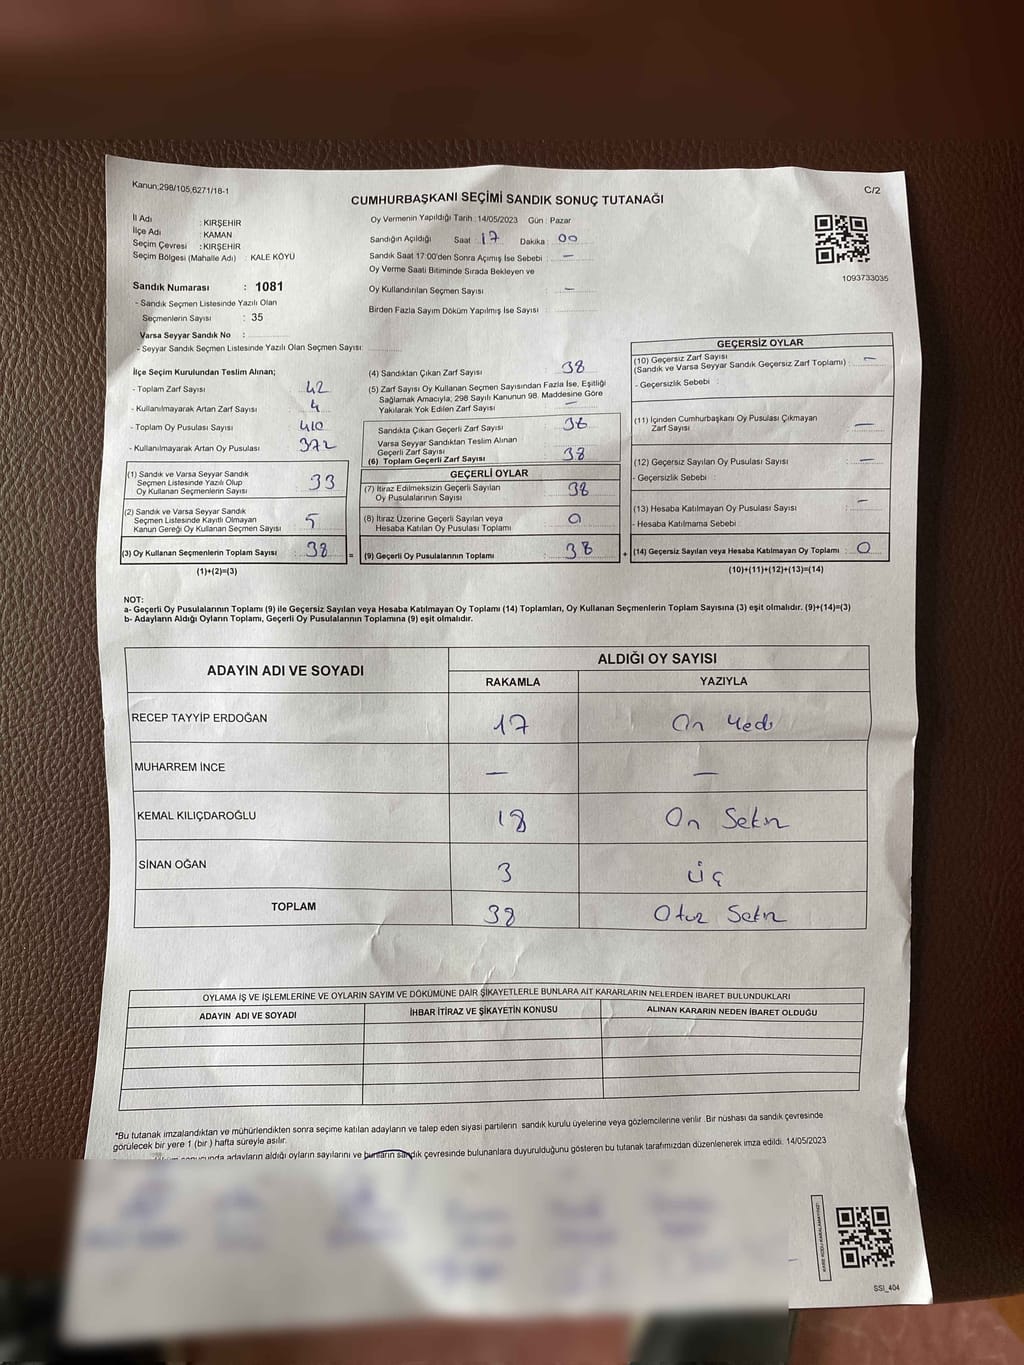 Kanun;298/105,6271/16-1
C/2
CUMHURBAŞKANI SEÇİMİ SANDIK SONUÇ TUTANAĞI
İl Adı : KIRŞEHİR
İlçe Adı : KAMAN
Seçim Çevresi : KIRŞEHİR
Seçim Bölgesi (Mahalle Adı) : KALE KÖYÜ
Sandık Numarası : 1081
- Sandık Seçmen Listesinde Yazılı Olan
Seçmenlerin Sayısı : 35
Varsa Seyyar Sandık No :
- Seyyar Sandık Seçmen Listesinde Yazılı Olan Seçmen Sayısı:
Oy Vermenin Yapıldığı Tarih : 14/05/2023 Gün : Pazar
Sandığın Açıldığı Saat 17 Dakika : 00
Sandık Saat 17:00'den Sonra Açımış İse Sebebi : —
Oy Verme Saati Bitiminde Sırada Bekleyen ve
Oy Kullandırılan Seçmen Sayısı : —
Birden Fazla Sayım Döküm Yapılmış İse Sayısı :
1093733035
İlçe Seçim Kurulundan Teslim Alınan;
- Toplam Zarf Sayısı : 42
- Kullanılmayarak Artan Zarf Sayısı : 4
- Toplam Oy Pusulası Sayısı : 410
- Kullanılmayarak Artan Oy Pusulası : 372
(1) Sandık ve Varsa Seyyar Sandık
Seçmen Listesinde Yazılı Olup
Oy Kullanan Seçmenlerin Sayısı : 33
(2) Sandık ve Varsa Seyyar Sandık
Seçmen Listesinde Kayıtlı Olmayan
Kanun Gereği Oy Kullanan Seçmen Sayısı : 5
(3) Oy Kullanan Seçmenlerin Toplam Sayısı : 38 =
(1)+(2)=(3)
(4) Sandıktan Çıkan Zarf Sayısı : 38
(5) Zarf Sayısı Oy Kullanan Seçmen Sayısından Fazla İse, Eşitliği
Sağlamak Amacıyla; 298 Sayılı Kanunun 98. Maddesine Göre
Yakılarak Yok Edilen Zarf Sayısı : —
Sandıkta Çıkan Geçerli Zarf Sayısı : 38
Varsa Seyyar Sandıktan Teslim Alınan
Geçerli Zarf Sayısı :
(6) Toplam Geçerli Zarf Sayısı : 38
GEÇERLİ OYLAR
(7) İtiraz Edilmeksizin Geçerli Sayılan
Oy Pusulalarının Sayısı : 38
(8) İtiraz Üzerine Geçerli Sayılan veya
Hesaba Katılan Oy Pusulası Toplamı : 0
(9) Geçerli Oy Pusulalarının Toplamı : 38 +
GEÇERSİZ OYLAR
(10) Geçersiz Zarf Sayısı
(Sandık ve Varsa Seyyar Sandık Geçersiz Zarf Toplamı) : —
- Geçersizlik Sebebi :
(11) İçinden Cumhurbaşkanı Oy Pusulası Çıkmayan
Zarf Sayısı : —
(12) Geçersiz Sayılan Oy Pusulası Sayısı : —
- Geçersizlik Sebebi :
(13) Hesaba Katılmayan Oy Pusulası Sayısı : —
- Hesaba Katılmama Sebebi :
(14) Geçersiz Sayılan veya Hesaba Katılmayan Oy Toplamı : 0
(10)+(11)+(12)+(13)=(14)
NOT:
a- Geçerli Oy Pusulalarının Toplamı (9) ile Geçersiz Sayılan veya Hesaba Katılmayan Oy Toplamı (14) Toplamları, Oy Kullanan Seçmenlerin Toplam Sayısına (3) eşit olmalıdır. (9)+(14)=(3)
b- Adayların Aldığı Oyların Toplamı, Geçerli Oy Pusulalarının Toplamına (9) eşit olmalıdır.
ADAYIN ADI VE SOYADI ALDIĞI OY SAYISI
RAKAMLA YAZIYLA
RECEP TAYYİP ERDOĞAN 17 On Yedi
MUHARREM İNCE — —
KEMAL KILIÇDAROĞLU 18 On Sekiz
SİNAN OĞAN 3 üç
TOPLAM 38 Otuz Sekiz
OYLAMA İŞ VE İŞLEMLERİNE VE OYLARIN SAYIM VE DÖKÜMÜNE DAİR ŞİKAYETLERLE BUNLARA AİT KARARLARIN NELERDEN İBARET BULUNDUKLARI
ADAYIN ADI VE SOYADI İHBAR İTİRAZ VE ŞİKAYETİN KONUSU ALINAN KARARIN NEDEN İBARET OLDUĞU
*Bu tutanak imzalandıktan ve mühürlendikten sonra seçime katılan adayların ve talep eden siyasi partilerin sandık kurulu üyelerine veya gözlemcilerine verilir. Bir nüshası da sandık çevresinde
görülecek bir yere 1 (bir) hafta süreyle asılır.
adayların aldığı oyların sayılarını ve bunların sandık çevresinde bulunanlara duyurulduğunu gösteren bu tutanak tarafımızdan düzenlenerek imza edildi. 14/05/2023
KARE KODU KARALAMAYINIZ!
SSI_404